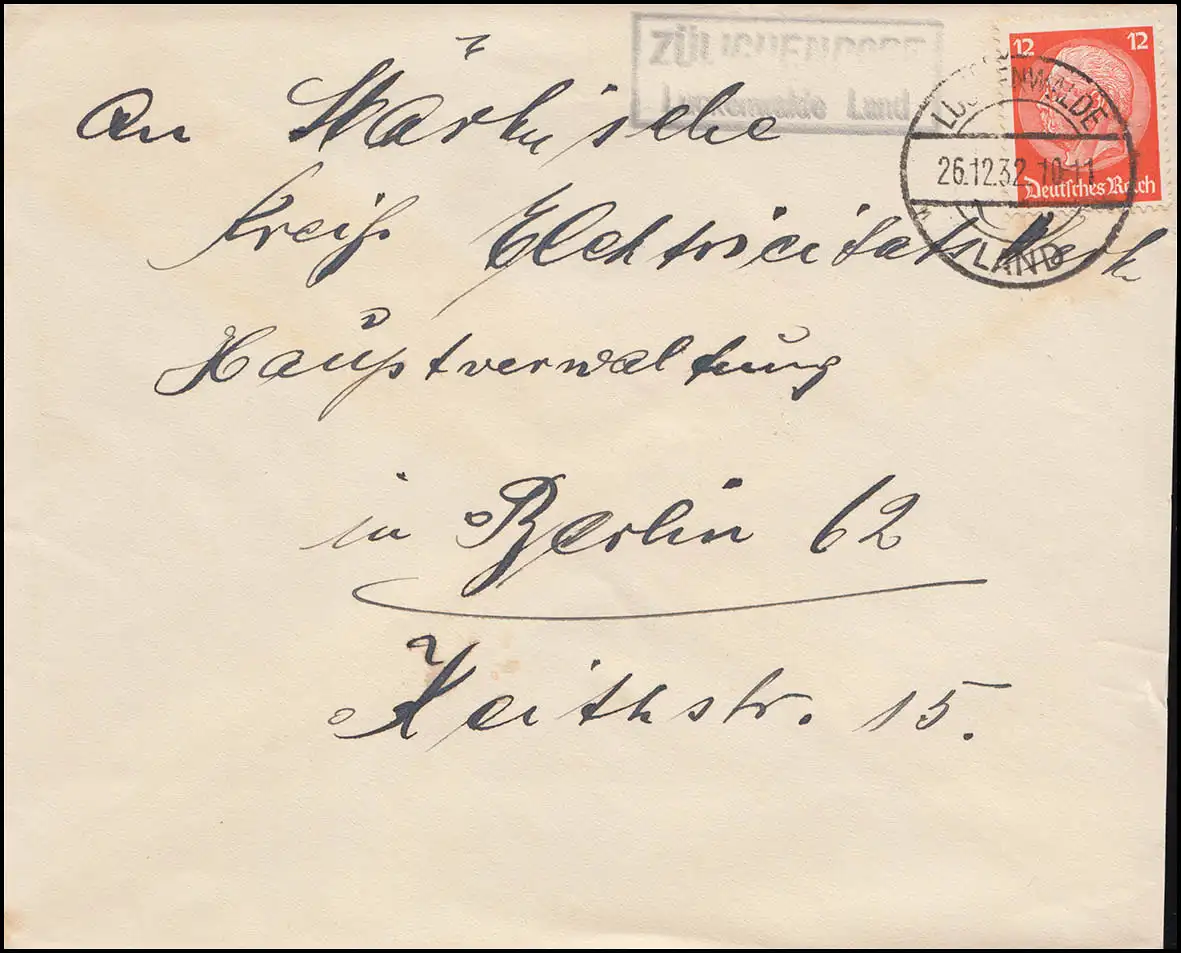 ZÜLICHENDORF
Luckenwalde Land
12 12
Deutsches Reich
LUCKENWALDE
26.12.32. 10-11
LAND
An Märkische
Kreiß Elektricitätswerk
Hauptverwaltung
in Berlin 62
Keithstr. 15.